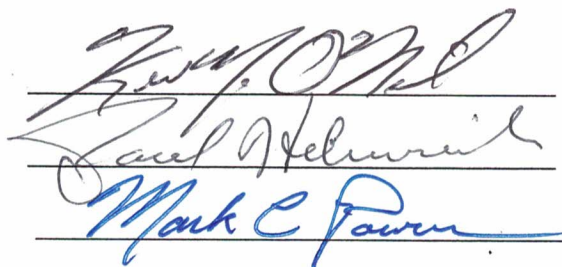 Kev M. O'Neil
Paul Helmreich
Mark C Power